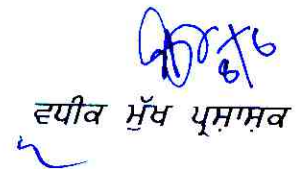 ਵਧੀਕ ਮੁੱਖ ਪ੍ਰਸ਼ਾਸ਼ਕ